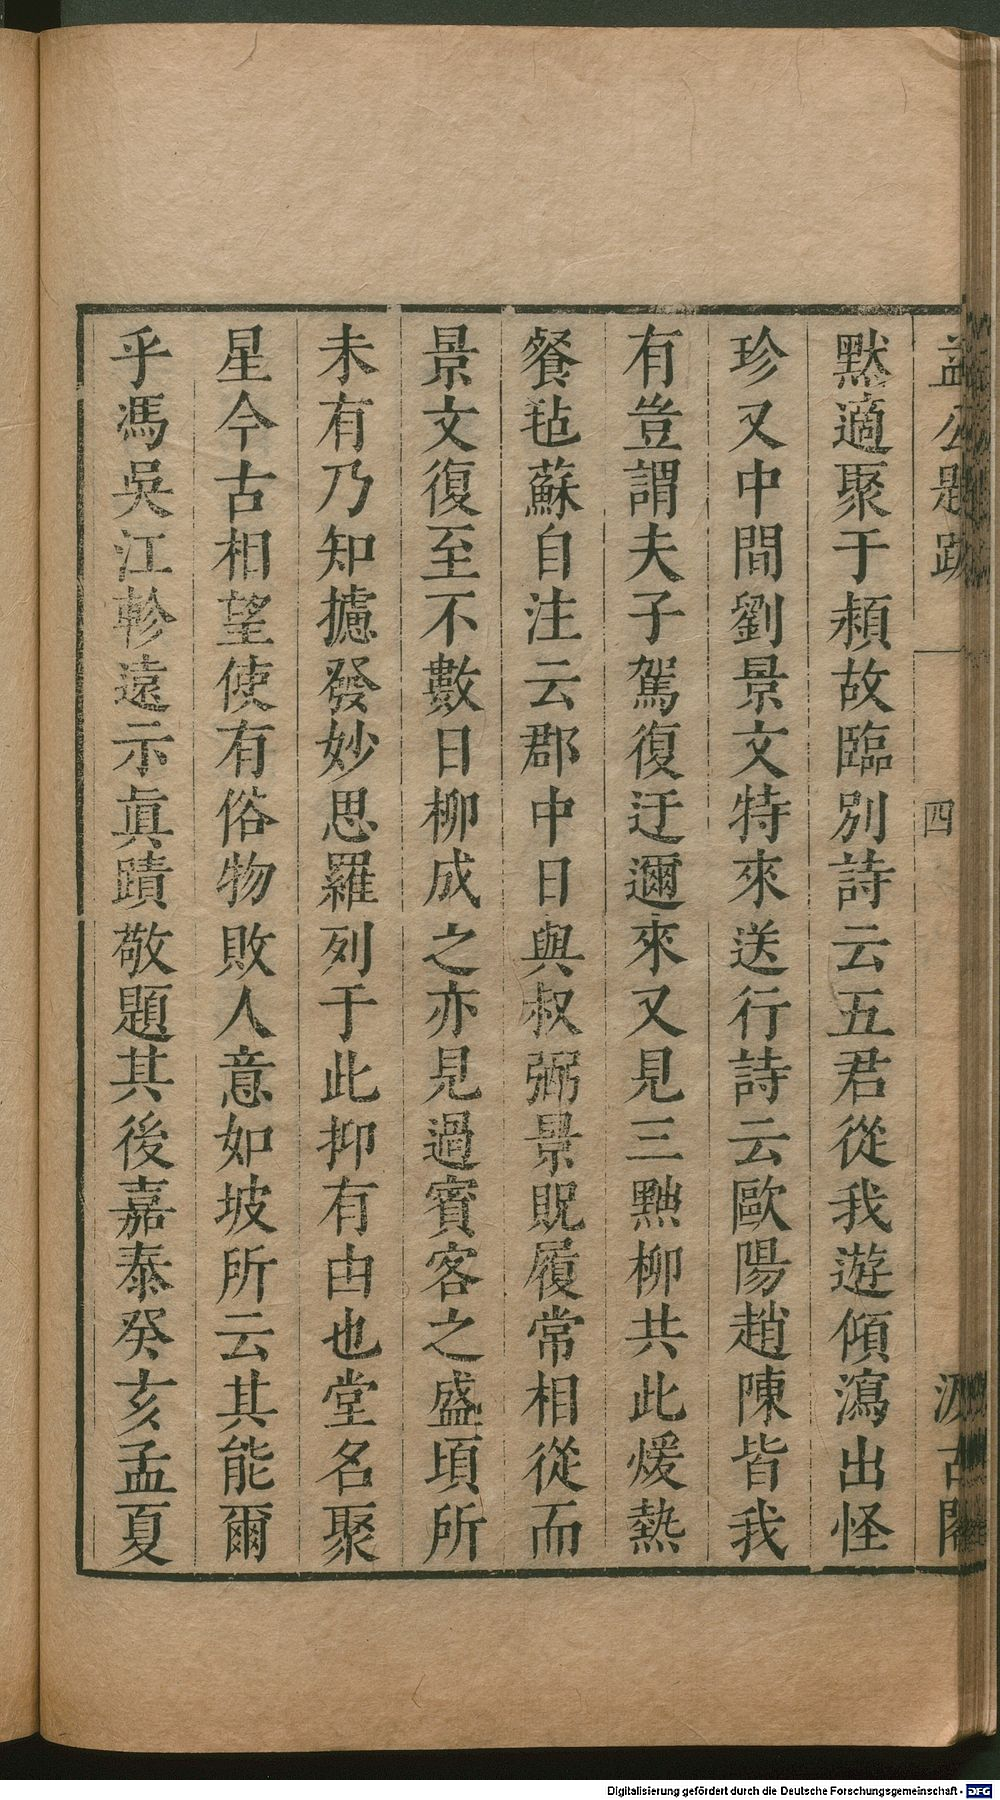 益公題跋 四 汲古閣
默適聚于潁故臨別詩云五君從我遊傾瀉出怪
珍又中間劉景文特來送行詩云歐陽趙陳皆我
有豈謂夫子駕復迂邇來又見三黜柳共此煖熱
餐毡蘇自注云郡中日與叔弼景貺履常相從而
景文復至不數日柳戒之亦見過賓客之盛頃所
未有乃知攄發妙思羅列于此抑有由也堂名聚
星今古相望使有俗物敗人意如坡所云其能爾
乎馮吳江軫遠示眞蹟敬題其後嘉泰癸亥孟夏
Digitalisierung gefördert durch die Deutsche Forschungsgemeinschaft - DFG